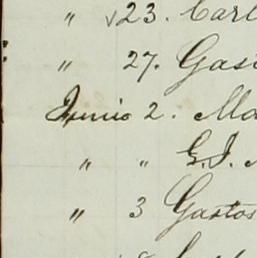 " √23. Carl
" 27. Gast
Junio 2. Ma
" " G.J.
" 3 Gastos